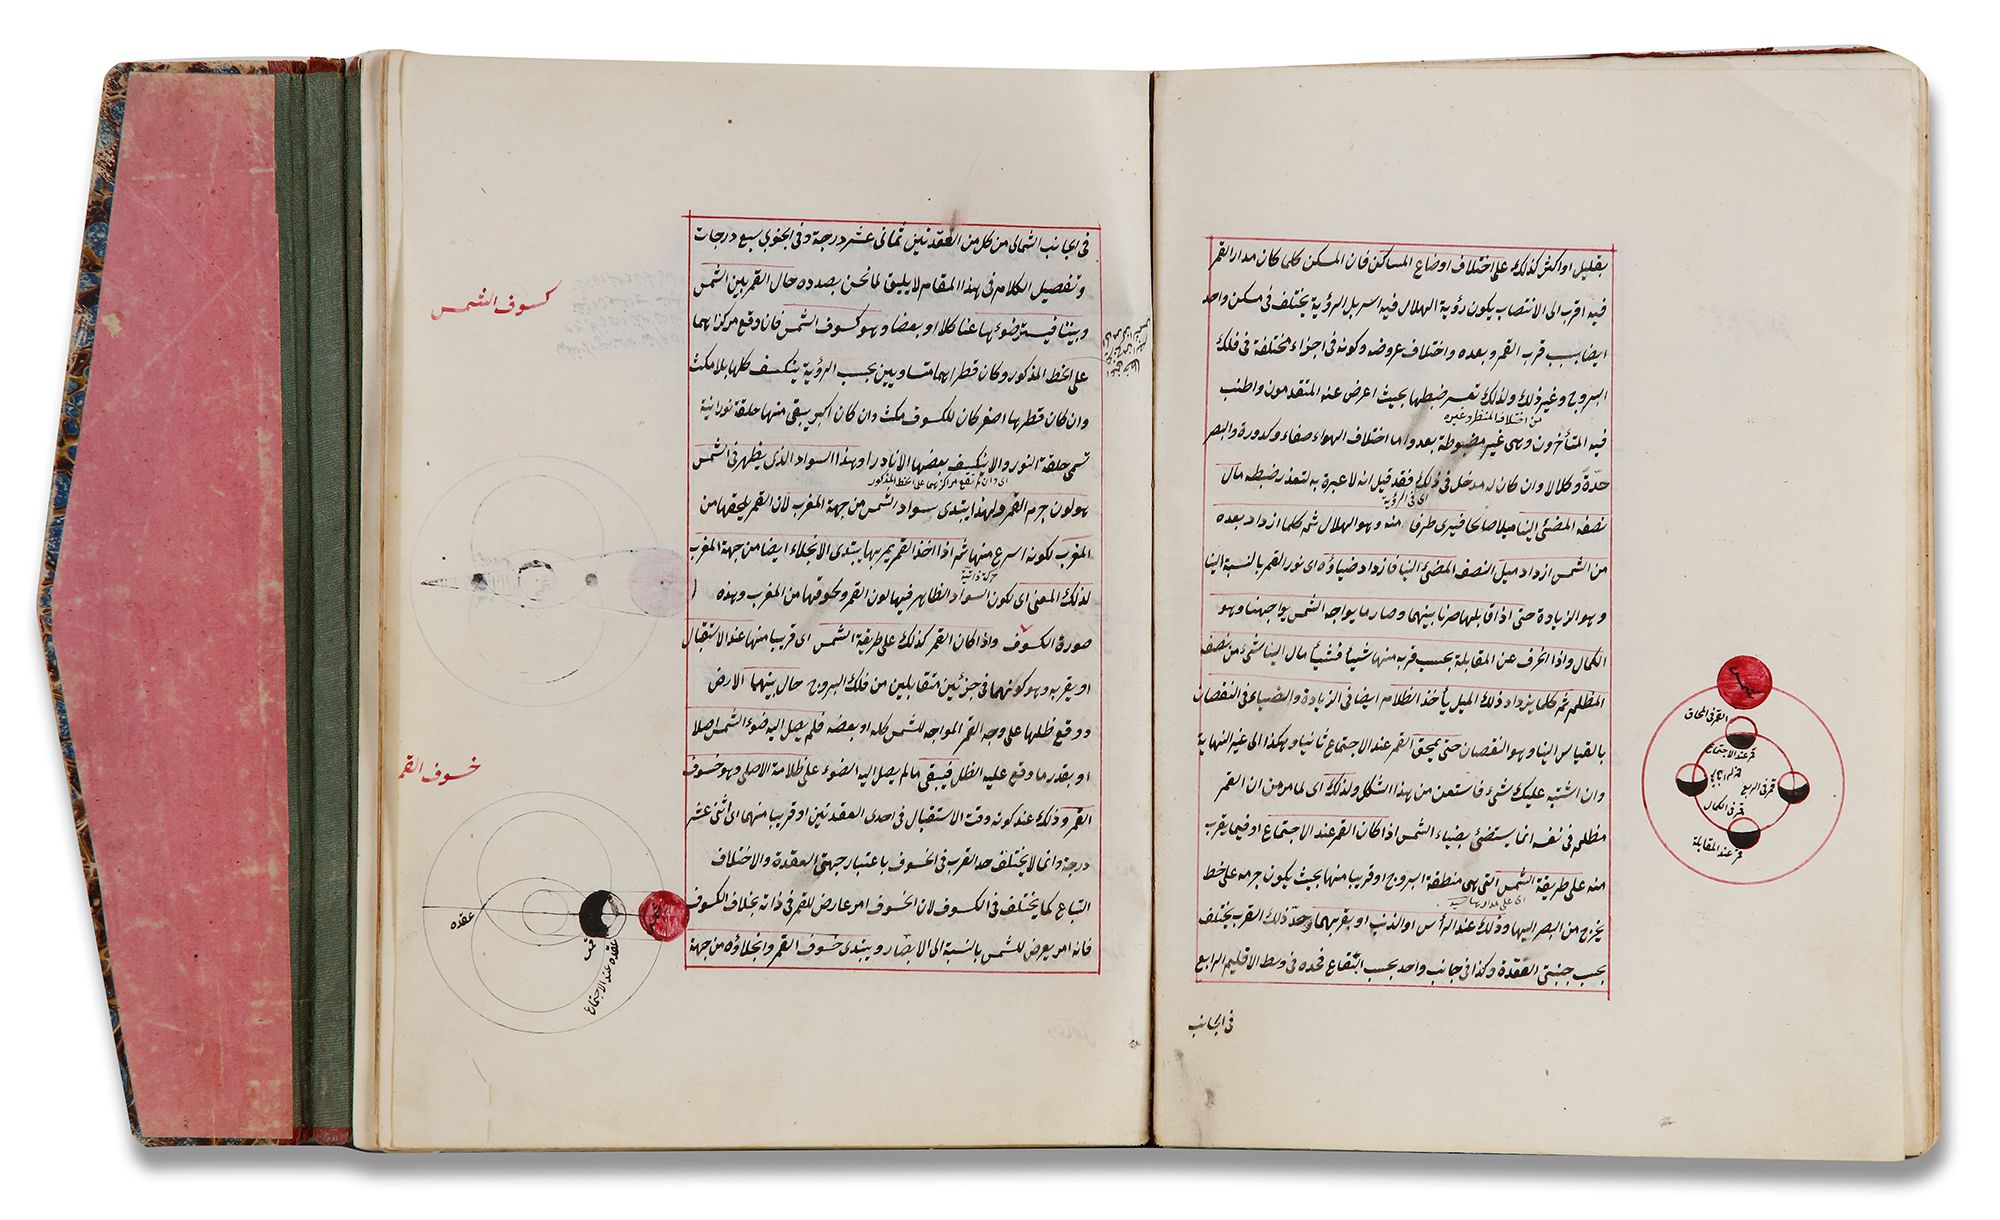 بقليل او اكثر كذلك على اختلاف اوضاع المساكن فان المسكن كلما كان مدار القمر
فيه اقرب الى الانتصاب يكون رؤية الهلال فيه اسرع بل الرؤية يختلف فى مسكن واحد
ايضا بسبب قرب القمر وبعده واختلاف عروضه وكونه فى اجزاء مختلفة فى فلك
البروج وغير ذلك ولذلك تعسر ضبطها بحيث اعرض عنه المتقدمون واطنب
من اختلاف المنظر وغيره
فيه المتأخرون وهى غير مضبوطة بعد واما اختلاف الهواء صفاء وكدورة والبصر
حدة وكلالا وان كان له مدخل فى ذلك فقد قيل انه لا عبرة به لتعذر ضبطه مال
اى فى الرؤية
نصفه المضئ الينا ميلا صالحا فيرى طرفا منه وهو الهلال ثم كلما ازداد بعده
من الشمس ازداد ميل النصف المضئ الينا فازداد ضياؤه اى نور القمر بالنسبة الينا
وهو الزيادة حتى اذا قابلها صرنا بينهما وصار ما يواجه الشمس يواجهنا وهو
الكمال واذا انحرف عن المقابلة بحسب قربه منها شيأ فشيأ مال الينا شئ من نصفه
المظلم ثم كلما يزداد ذلك الميل يأخذ الظلام ايضا فى الزيادة والضياء فى النقصان
بالقياس الينا وهو النقصان حتى يمحق القمر عند الاجتماع ثانيا وهكذا الى غير النهاية
وان اشتبه عليك شئ فاستعن من هذا الشكل ولذلك اى لما مر من ان القمر
مظلم فى نفسه انما يستضئ بضياء الشمس اذا كان القمر عند الاجتماع او فيما يقرب
منه على طريقة الشمس التى هى منطقة البروج او قريبا منها بحيث يكون جرمه على خط
يخرج من البصر اليها وذلك عند الرأس او الذنب او بقربهما وحد ذلك القرب يختلف
بحسب جنبتى العقدة وكذا فى جانب واحد بحسب البقاع فحده فى وسط الاقليم الرابع
فى الجانب
شمس
القمر فى المحاق
قمر عند الاجتماع
قمر فى الربيع
قمر فى الكمال
قمر عند المقابلة
فى الجانب الشمالى من كل من العقدتين ثمانى عشر درجة وفى الجنوبى سبع درجات
وتفصيل الكلام فى هذا المقام لا يليق لما نحن بصدده حال القمر بين الشمس
وبيننا فيستر ضوئها عنا كلا او بعضا وهو كسوف الشمس فان وقع مركزاهما
على الخط المذكور وكان قطراهما متساويين بحسب الرؤية ينكسف كلها بلا مكث
وان كان قطرها اصغر كان للكسوف مكث وان كان اكبر يبقى منها حلقة نورانية
تسمى حلقة النور والا ينكسف بعضها الا نادرا وهذا السواد الذى يظهر فى الشمس
اى وان لم تقع مراكزهما على الخط المذكور
هو لون جرم القمر ولهذا يبتدى سواد الشمس من جهة المغرب لان القمر يلحقها من
المغرب لكونه اسرع منها ثم اذا اخذ القمر يمر بها يبتدى الانجلاء ايضا من جهة المغرب
حركة ذاتية
لذلك المعنى اى لكون السواد الظاهر فيها لون القمر ولحوقها من المغرب وهذه
صورة الكسوف واذا كان القمر كذلك على طريقة الشمس اى قريبا منها عند الاستقبال
او بقربه وهو كونهما فى جزئين متقابلين من فلك البروج حال بينهما الارض
ووقع ظلها على وجه القمر المواجه للشمس كله او بعضه فلم يصل اليه ضوء الشمس اصلا
او بقدر ما وقع عليه الظل فيبقى ما لم يصل اليه الضوء على ظلامه الاصلى وهو خسوف
القمر وذلك عند كونه وقت الاستقبال فى احدى العقدتين او قريبا منهما اى اثنى عشر
درجة وانما لا يختلف حد القرب فى الخسوف باعتبار جهتى العقدة والاختلاف
البقاع كما يختلف فى الكسوف لان الخسوف امر عارض للقمر فى ذاته بخلاف الكسوف
فانه امر يعرض للشمس بالنسبة الى الابصار ويبتدى خسوف القمر وانجلاؤه من جهة
كسوف الشمس
خسوف القمر
عقده
عقده عند الاجتماع